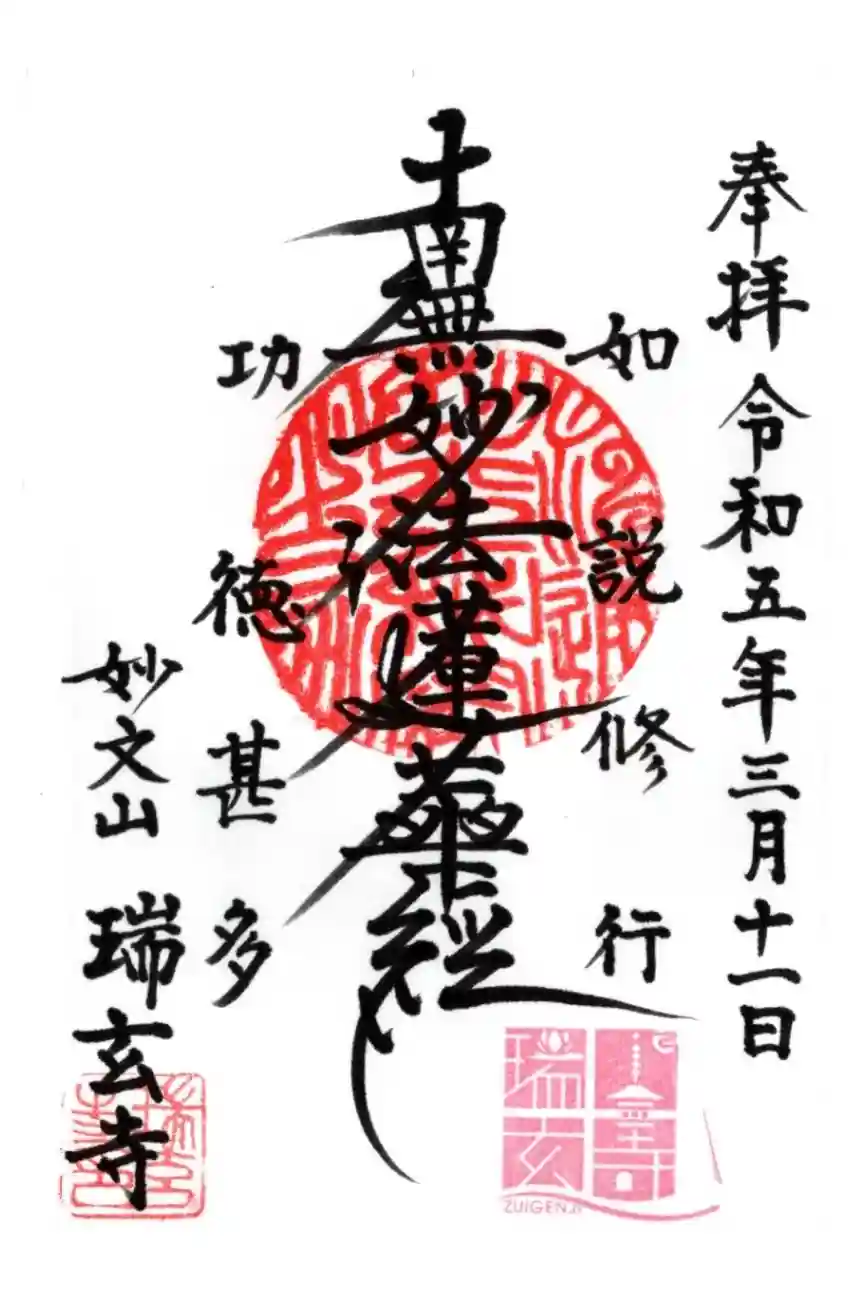 奉拝 令和五年三月十一日
如説修行
南無妙法蓮華経
功徳甚多
妙文山 瑞玄寺
瑞玄寺
ZUIGENJI